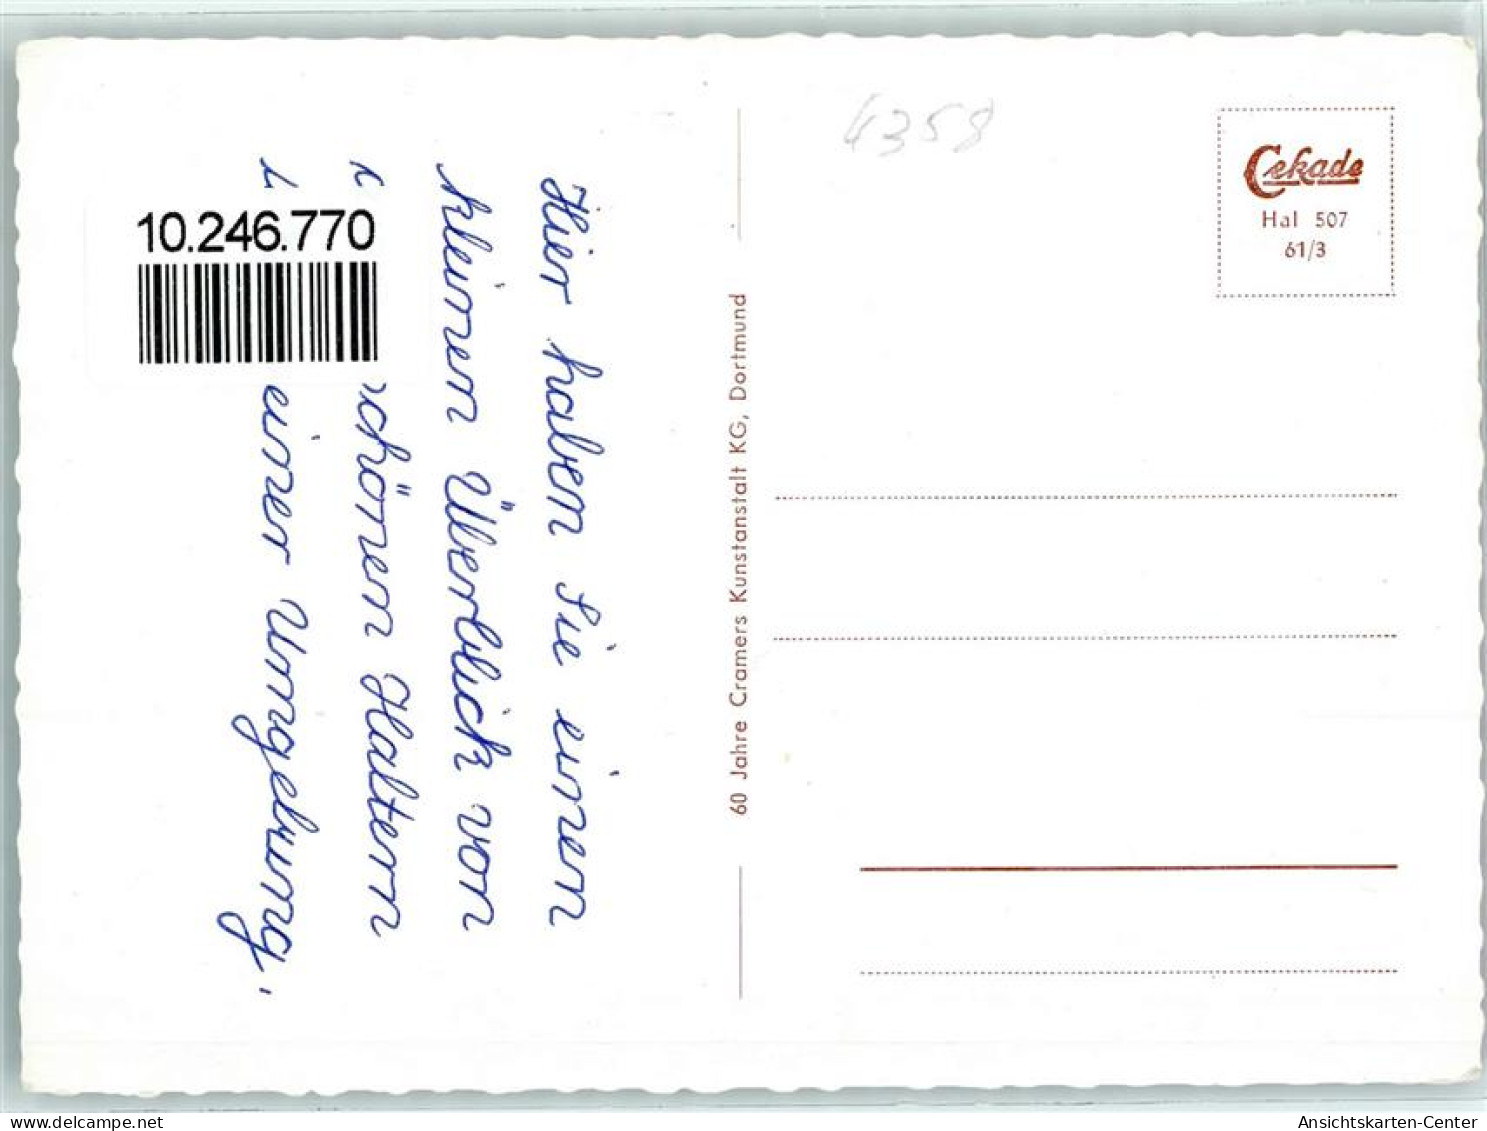 Hier haben Sie einen
kleinen Überblick von
chönen Haltern
einer Umgebung,
10.246.770
60 Jahre Cramers Kunstanstalt KG, Dortmund
4358
Cekade
Hal 507
61/3
delcampe.net
Ansichtskarten-Center